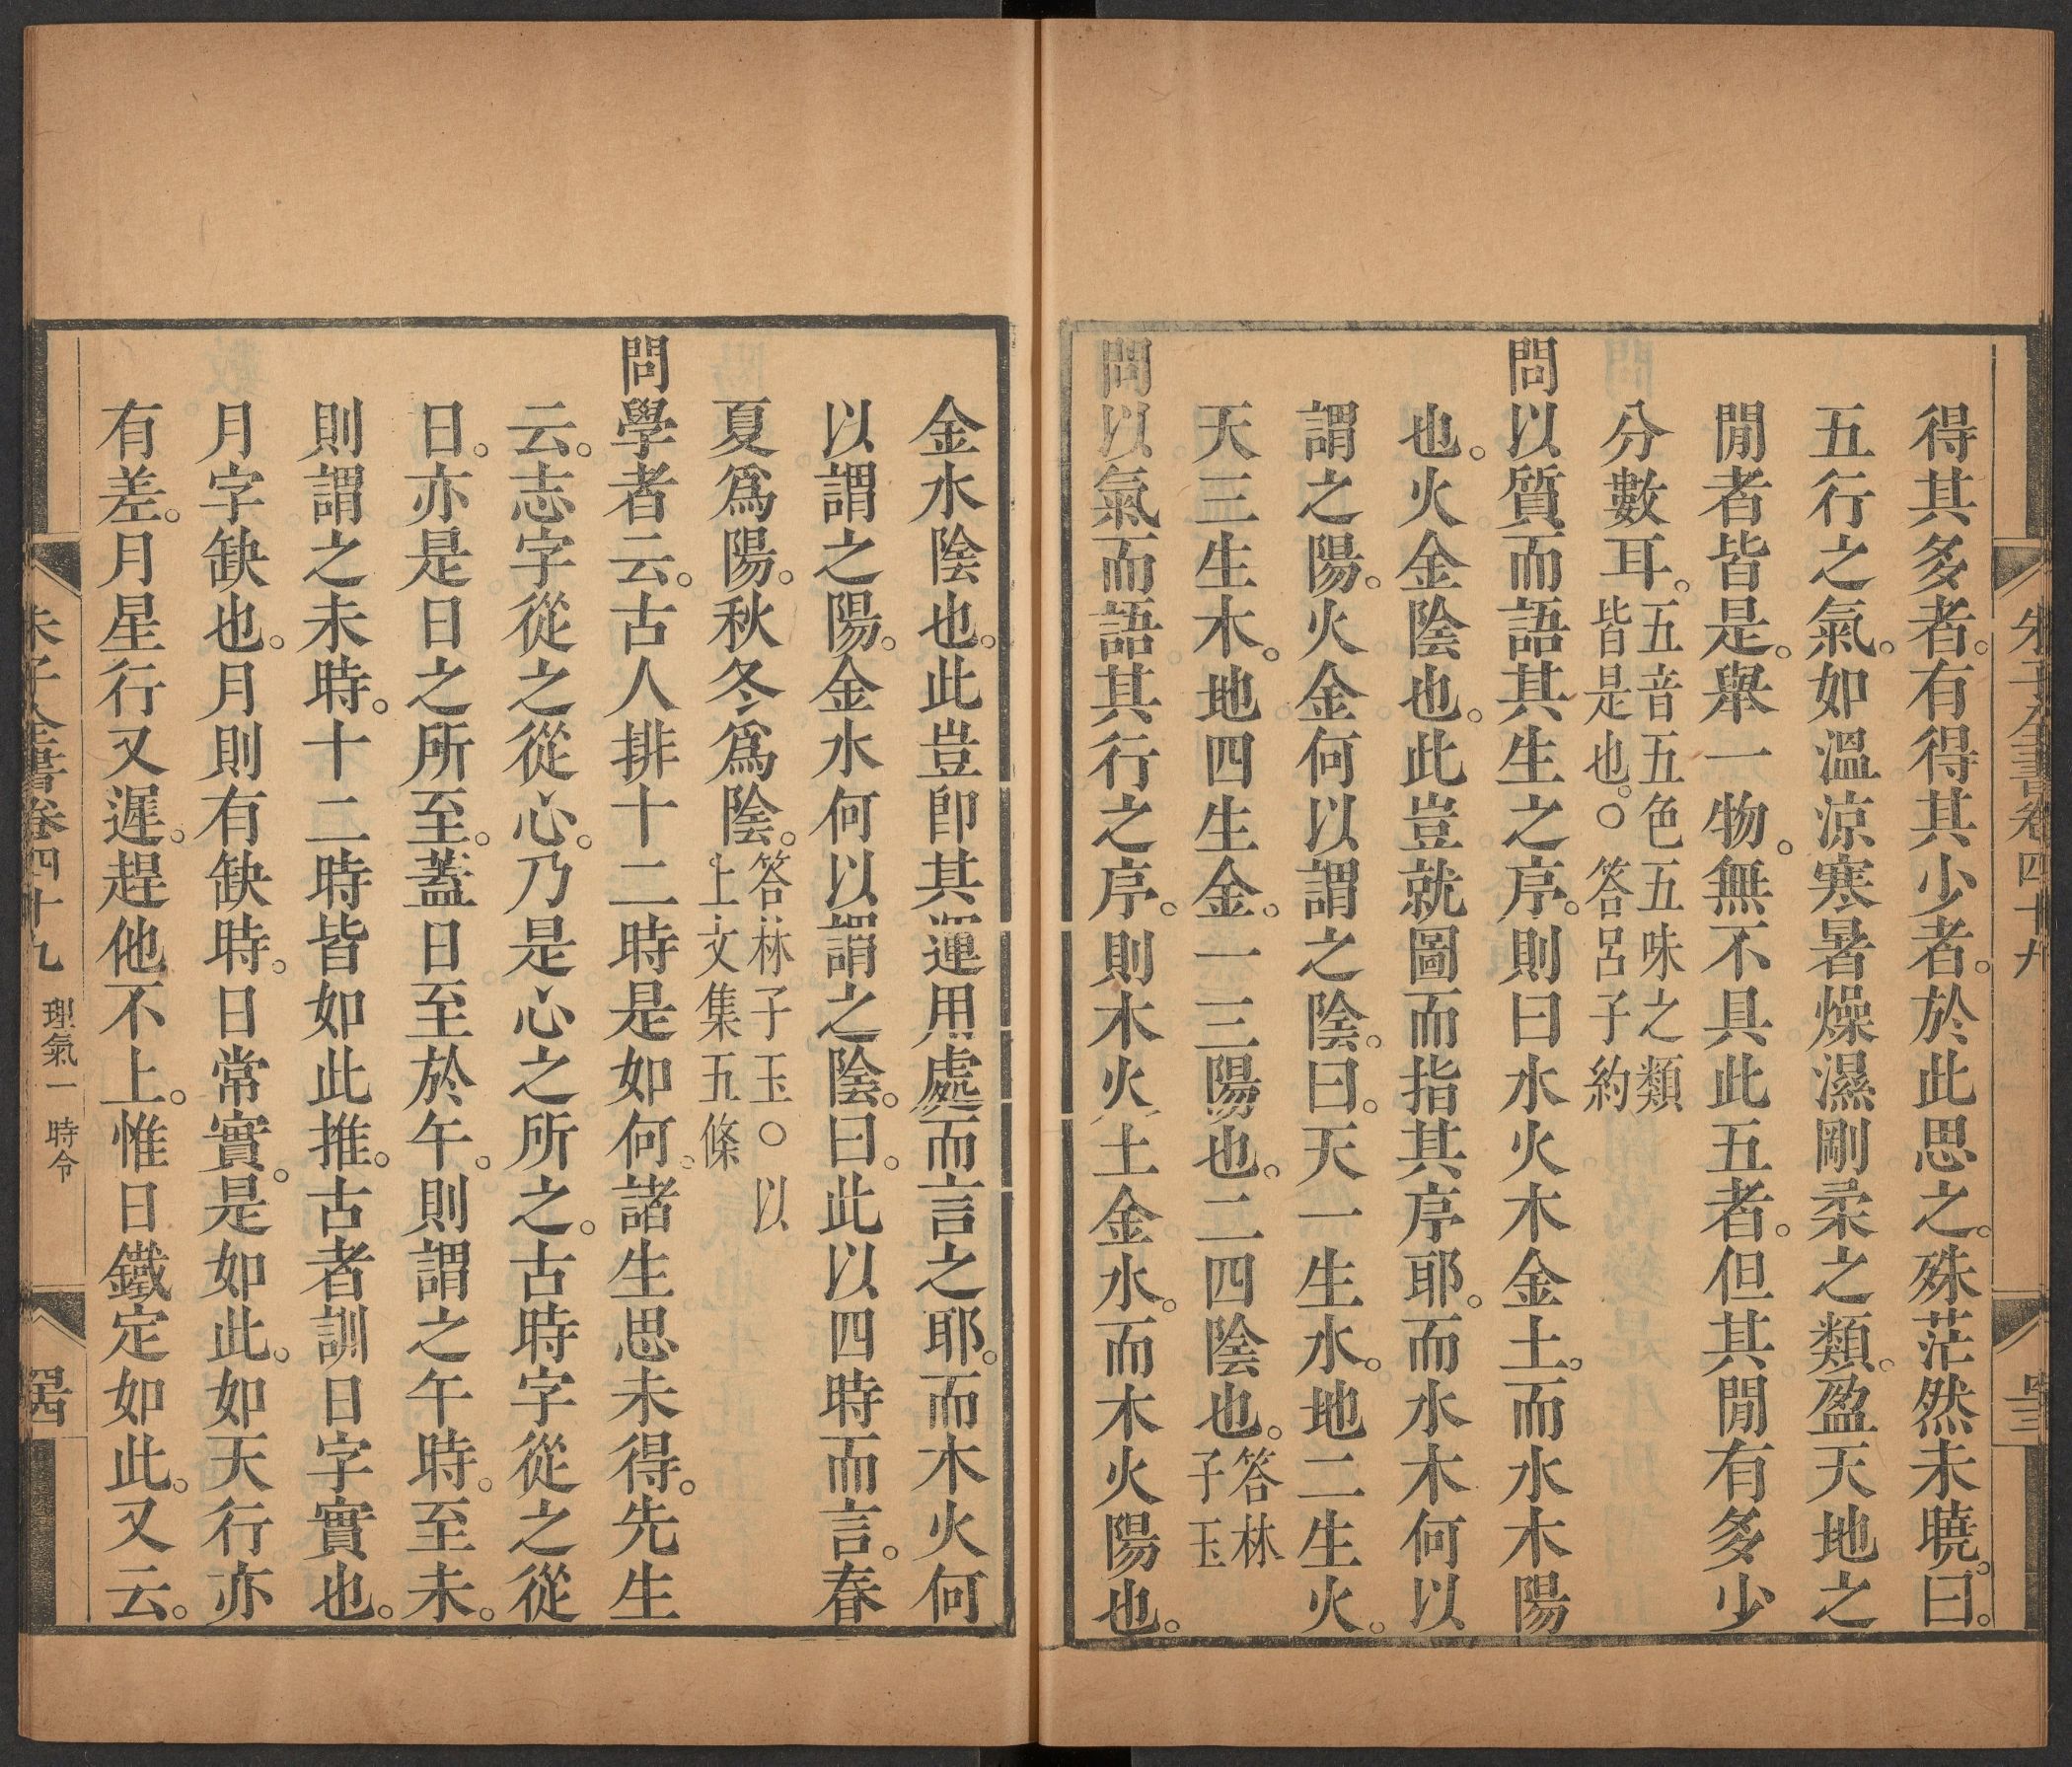 朱子全書卷四十九
得其多者。有得其少者。於此思之。殊茫然未曉。曰。
五行之氣。如溫涼寒暑燥濕剛柔之類。盈天地之
閒者皆是。舉一物。無不具此五者。但其閒有多少
分數耳。五音五色五味之類皆是也。○答呂子約
問以質而語其生之序。則曰水火木金土。而水木陽
也。火金陰也。此豈就圖而指其序耶。而水木何以
謂之陽。火金何以謂之陰。曰。天一生水。地二生火。
天三生木。地四生金。一三陽也。二四陰也。答林子玉
問以氣而語其行之序。則木火土金水。而木火陽也。
金水陰也。此豈卽其運用處而言之耶。而木火何
以謂之陽。金水何以謂之陰。曰。此以四時而言。春
夏爲陽。秋冬爲陰。答林子玉○以上文集五條
問學者云。古人排十二時是如何。諸生思未得。先生
云。志字從之從心。乃是心之所之。古時字從之從
日。亦是日之所至。蓋日至於午。則謂之午時。至未。
則謂之未時。十二時皆如此推。古者訓日字實也。
月字缺也。月則有缺時。日常實。是如此。如天行亦
有差。月星行又遲。趕他不上。惟日鐵定如此。又云。
朱子全書卷四十九 理氣一 時令